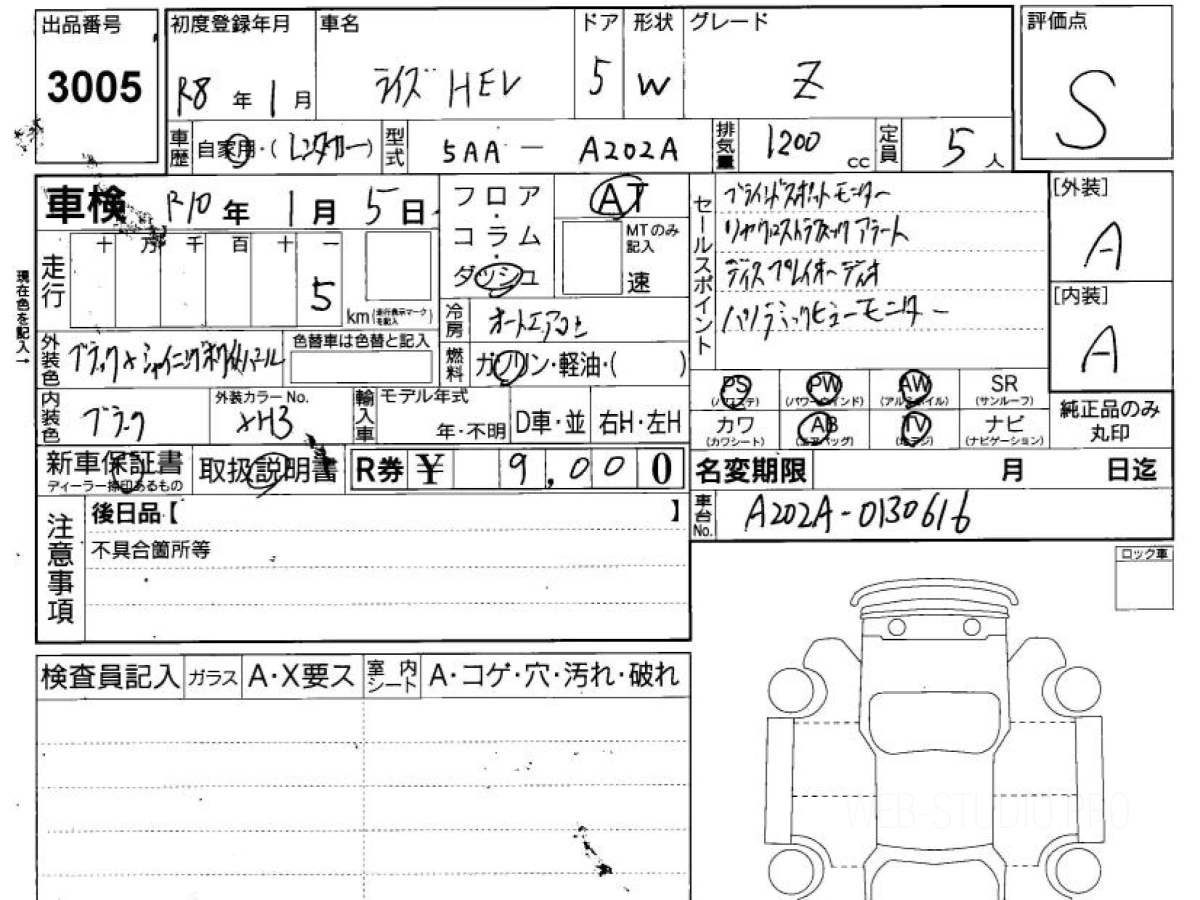 出品番号
3005
初度登録年月
R8 年 1 月
車名
ライズ HEV
ドア
5
形状
W
グレード
Z
評価点
S
車歴
自家用・(レンタカー)
型式
5AA - A202A
排気量
1200 cc
定員
5 人
車検 R10 年 1 月 5 日
フロア
・
コラム
・
ダッシュ
AT
MTのみ
記入
速
セールスポイント
ブラインドスポットモニター
リヤクロストラフィックアラート
ディスプレイオーディオ
パノラミックビューモニター
[外装]
A
[内装]
A
現在色を記入→
走行
十 万 千 百 十 一
5
km(走行表示マークを記入)
冷房
オートエアコン
外装色
ブラック×シャイニングホワイトパール
色替車は色替と記入
燃料
ガソリン・軽油・( )
PS
(パワステ)
PW
(パワーウインド)
AW
(アルミホイル)
SR
(サンルーフ)
純正品のみ
丸印
内装色
ブラック
外装カラーNo.
XH3
輸入車
モデル年式
年・不明
D車・並
右H・左H
カワ
(カワシート)
AB
(エアバッグ)
TV
(地デジ)
ナビ
(ナビゲーション)
新車保証書
ディーラー捺印あるもの
取扱説明書
R券 ¥ 9,000
名変期限 月 日迄
注意事項
後日品【 】
車台No.
A202A-0130616
不具合箇所等
ロック車
検査員記入
ガラス
A・X要ス
室内シート
A・コゲ・穴・汚れ・破れ
WEB-STUDIO.PRO